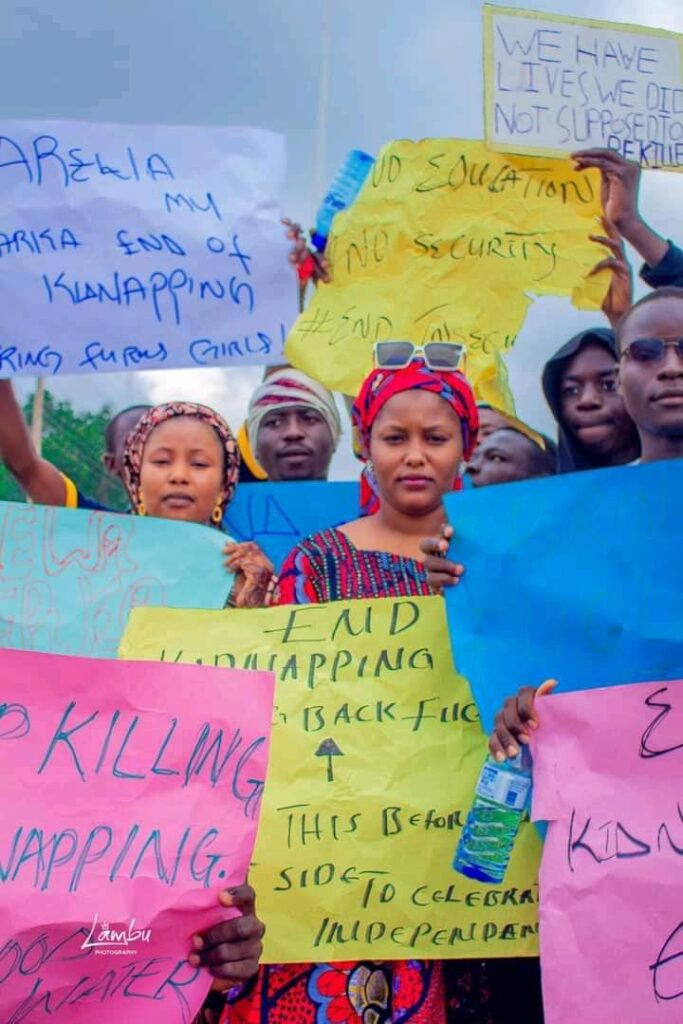 WE HAVE
LIVES WE DID
NOT SUPPOSED TO
BE KILLE
AREWA
MY
ARKA END OF
KIDNAPPING
FUGUS GIRLS!
NO EDUCATION
NO SECURITY
#END INSECU
END
KIDNAPPING
BACK FUG
THIS BEFOR
SIDE TO CELEBRA
INDEPENDAN
P KILLING
NAPPING.
OOD
WATER
E
KIDN
Lambu
PHOTOGRAPHY